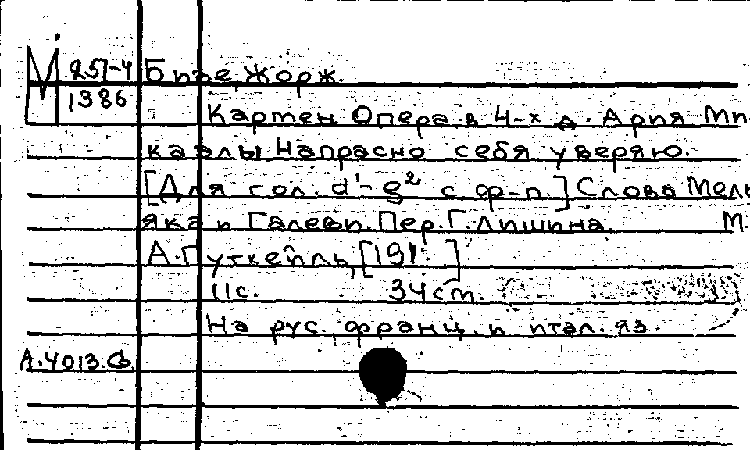 М 251-4 Бизе, Жорж.
1386
Кармен. Опера в 4-х д. Ария Ми
каэлы Напрасно себя уверяю.
[Для сол. d¹-g² с ф-п] Слова Мель
яка и Галеви. Пер. Г. Лишина. М.
А. Гутхейль, [191 ]
11с. 34см.
На рус., франц. и итал. яз.
А.4013.Г.